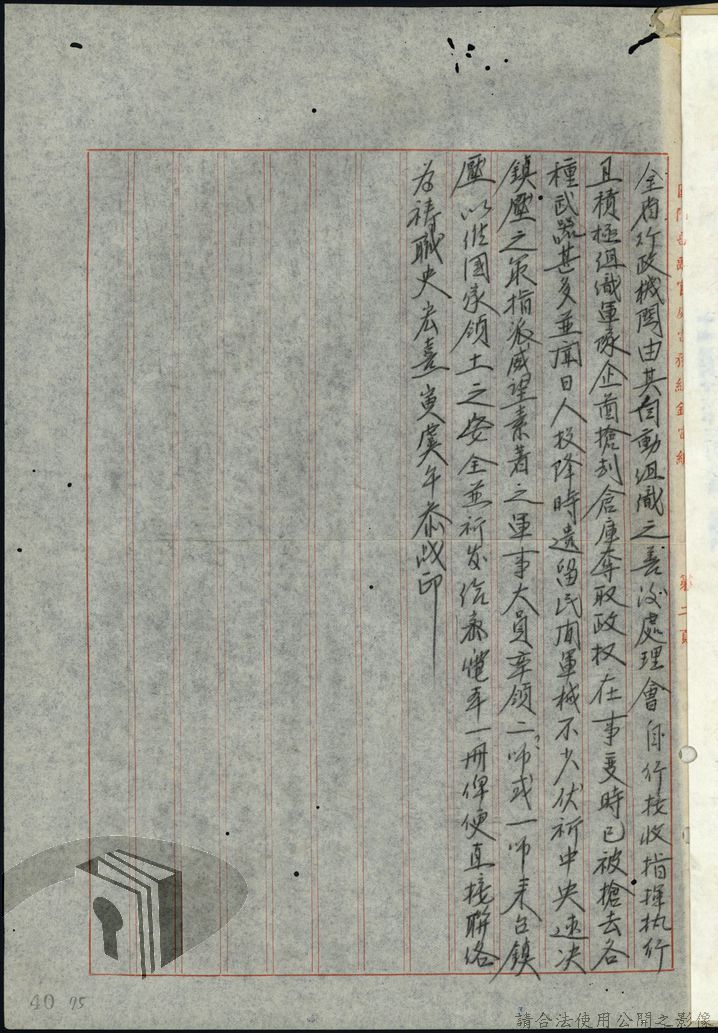 全省行政機関由其自動组織之善後處理會自行接收指揮执行
且積極组織軍隊企啚搶刦倉庫奪取政权在事变時已被搶去各
種武器甚多並闻日人投降時遺留民间軍械不少伏祈中央速决
鎮壓之策指派威望素著之軍事大員率领二师或一师来台鎮
壓以维國家领土之安全並祈发给泰 电一册俾便直接聯络
为祷職史宏熹寅虞午泰战印
第二頁
40 75
請合法使用公開之影像